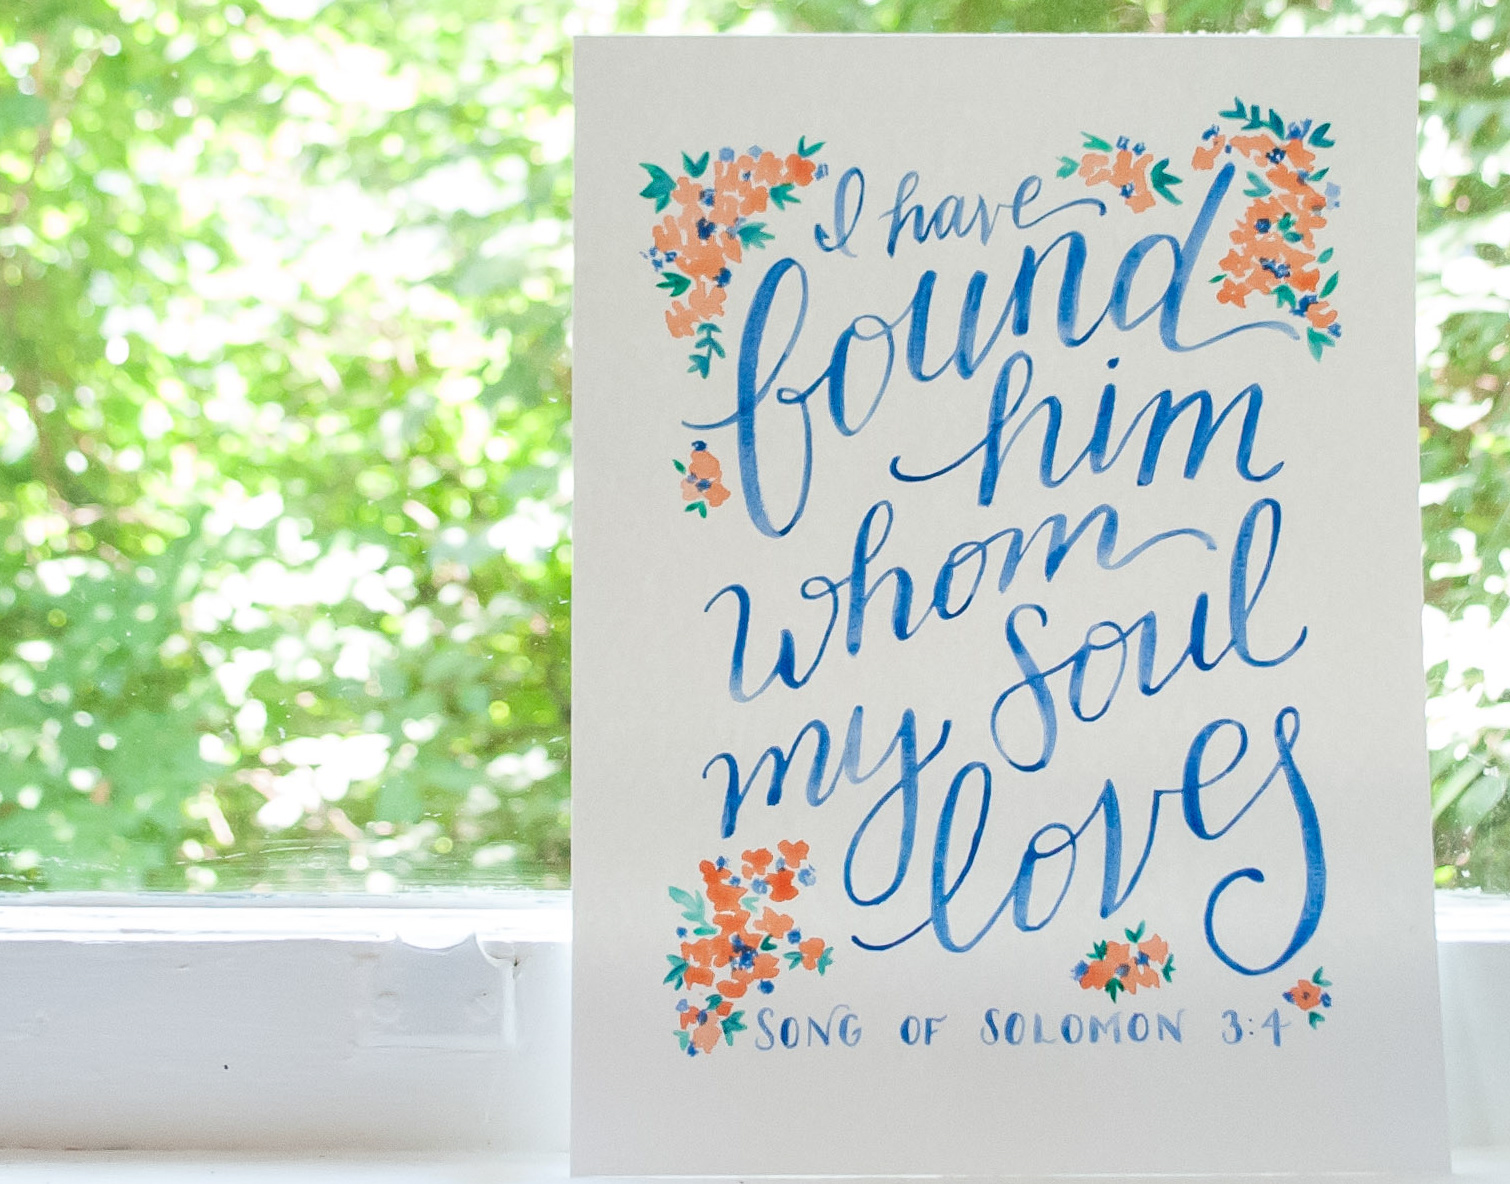 I have
found
him
whom
my soul
loves
SONG OF SOLOMON 3:4